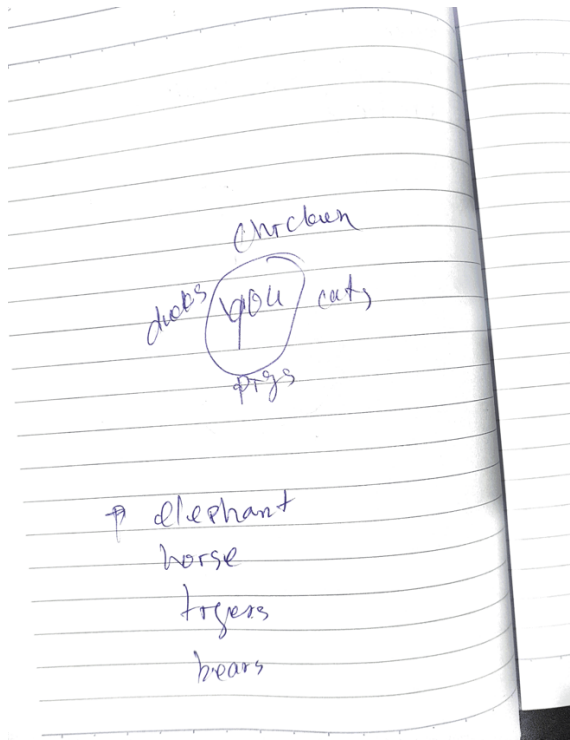 chicken
ducks you cats
pigs
elephant
horse
tigers
bears